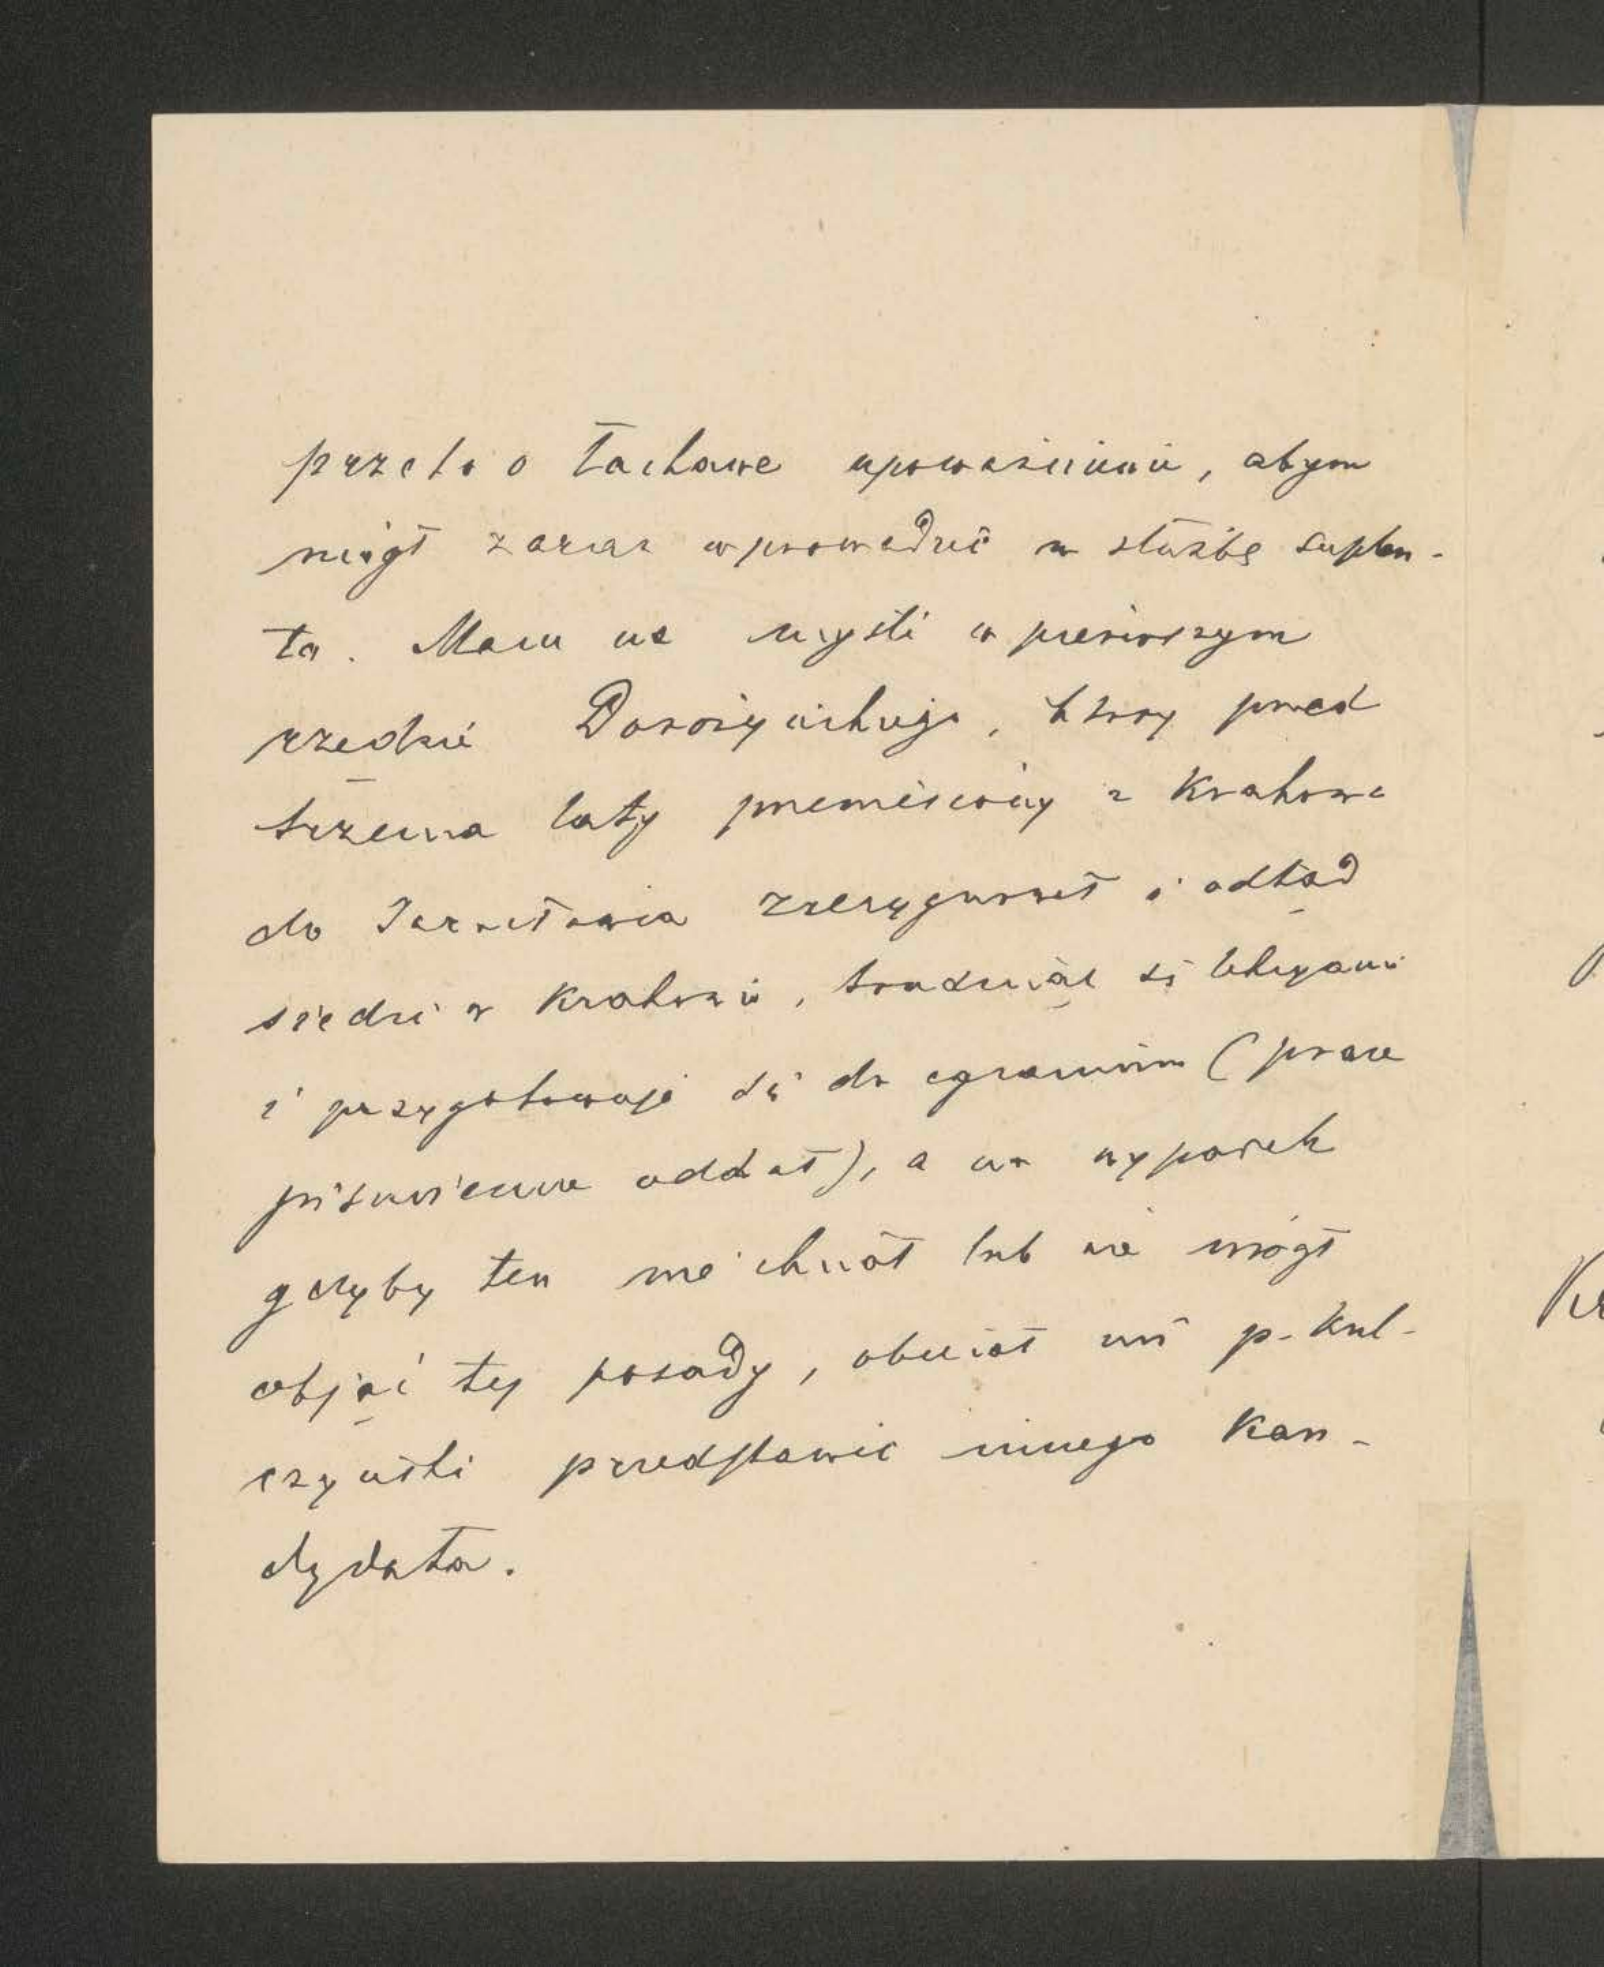 przeto o łaskawe upoważnienie, abym
mógł zaraz wprowadzić w służbę suplen-
ta. Mam na myśli w pierwszym
rzędzie Dorożyńskiego, który przed
trzema laty przeniesiony z Krakowa
do Jarosławia zrezygnował i odtąd
siedzi w Krakowie, trudniąc się lekcyami
i przygotowuje się do egzaminu (prace
piśmienne oddał), a na wypadek
gdyby ten nie chciał lub nie mógł
objąć tej posady, obiecał mi p. Kul-
czyński przedstawić innego kan-
dydata.